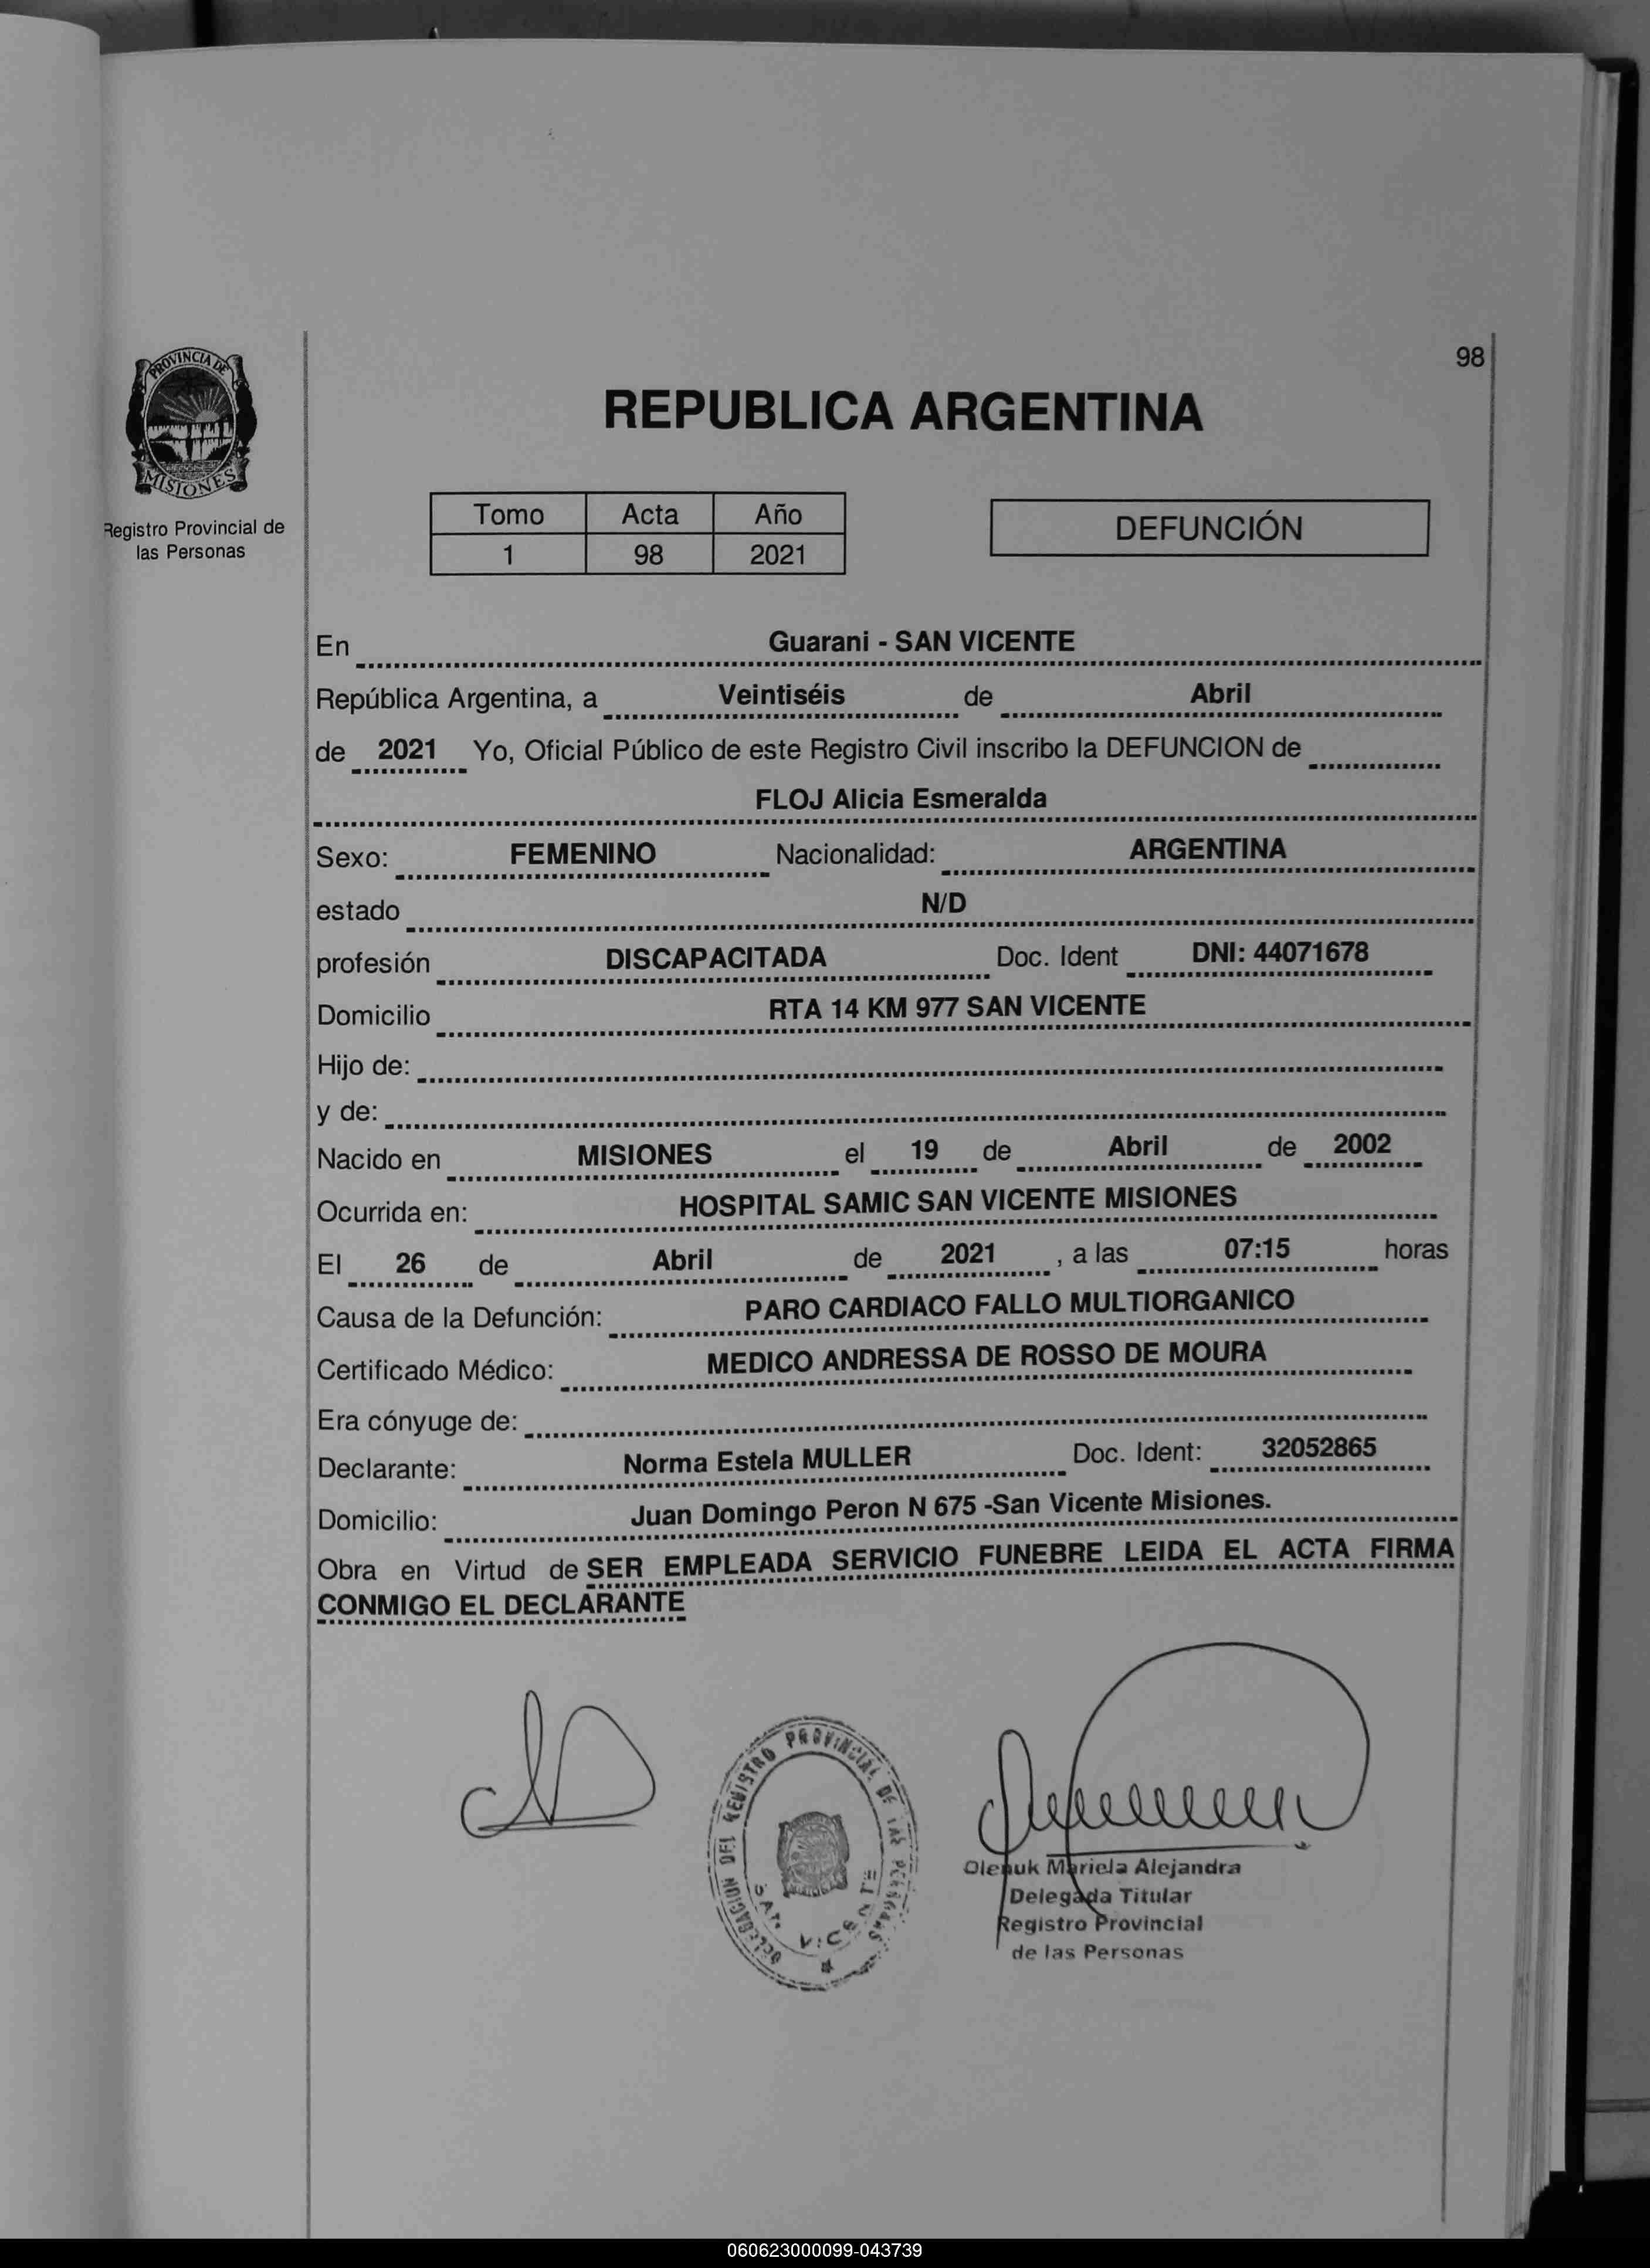 98
PROVINCIA DE
MISIONES
Registro Provincial de
las Personas
REPUBLICA ARGENTINA
Tomo Acta Año
1 98 2021
DEFUNCIÓN
En Guarani - SAN VICENTE
República Argentina, a Veintiséis de Abril
de 2021 Yo, Oficial Público de este Registro Civil inscribo la DEFUNCION de
FLOJ Alicia Esmeralda
Sexo: FEMENINO Nacionalidad: ARGENTINA
estado N/D
profesión DISCAPACITADA Doc. Ident DNI: 44071678
Domicilio RTA 14 KM 977 SAN VICENTE
Hijo de:
y de:
Nacido en MISIONES el 19 de Abril de 2002
Ocurrida en: HOSPITAL SAMIC SAN VICENTE MISIONES
El 26 de Abril de 2021 , a las 07:15 horas
Causa de la Defunción: PARO CARDIACO FALLO MULTIORGANICO
Certificado Médico: MEDICO ANDRESSA DE ROSSO DE MOURA
Era cónyuge de:
Declarante: Norma Estela MULLER Doc. Ident: 32052865
Domicilio: Juan Domingo Peron N 675 -San Vicente Misiones.
Obra en Virtud de SER EMPLEADA SERVICIO FUNEBRE LEIDA EL ACTA FIRMA
CONMIGO EL DECLARANTE
DELEGACION DEL REGISTRO PROVINCIAL DE LAS PERSONAS
SAN VICENTE
Mariela Alejandra
Delegada Titular
Registro Provincial
de las Personas
060623000099-043739